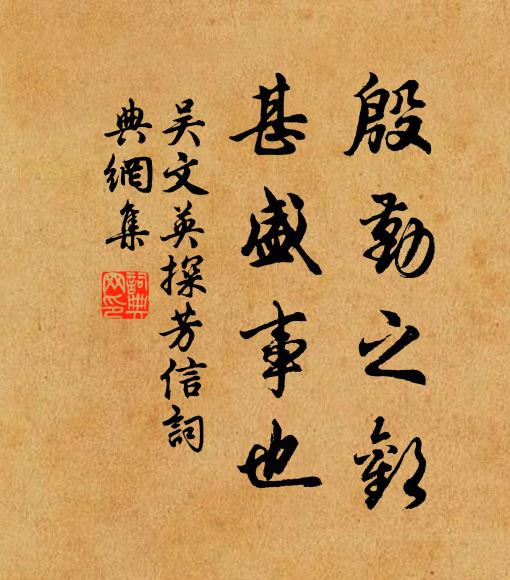 殷勤之歡
甚盛事也
吴文英探芳信詞
典網集
詞典网印